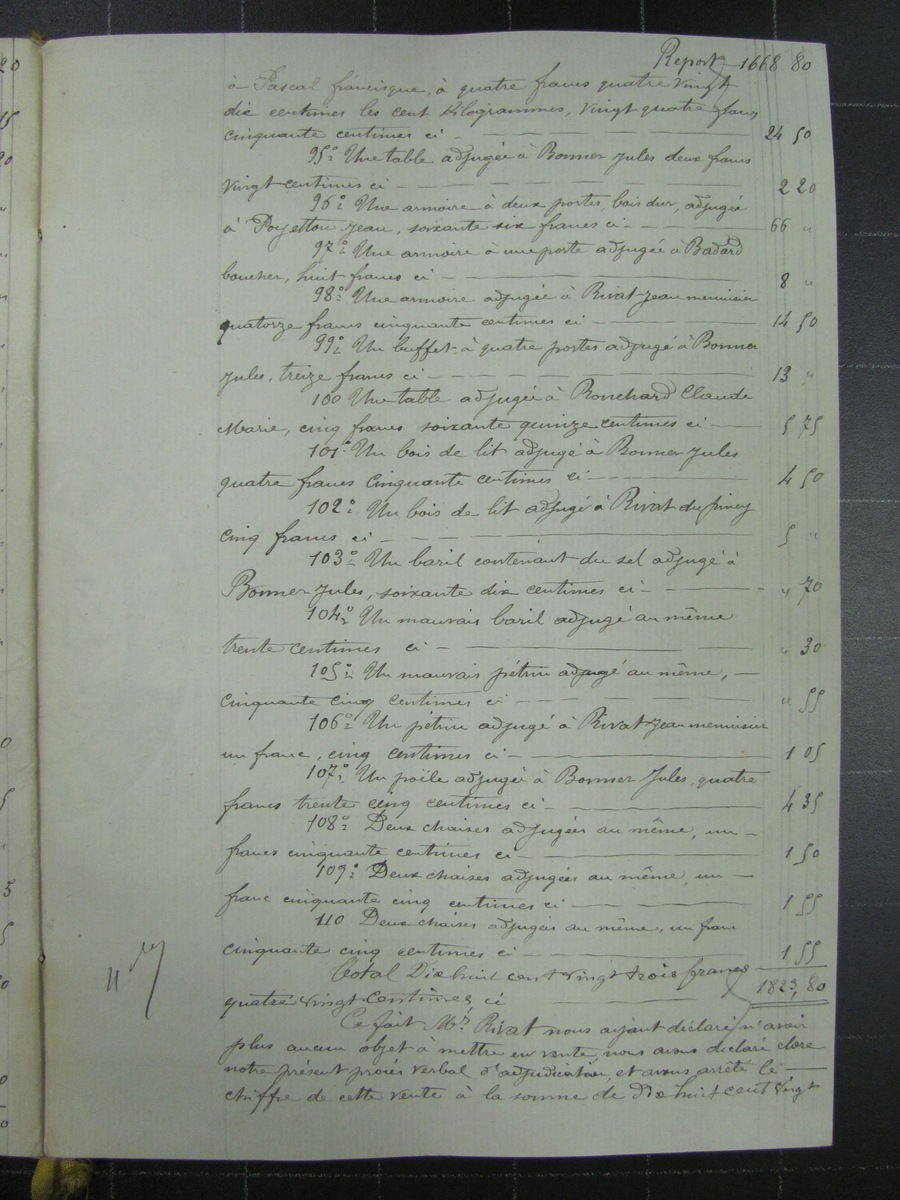 Report 1668 80
à Pascal francisque, à quatre francs quatre vingt
dix centimes les cent Kilogrammes, vingt quatre francs
cinquante centimes ci 24 50
95° Une table adjugée à Bonner Jules deux francs
vingt centimes ci 2 20
96° Une armoire à deux portes, bois dur, adjugée
à Poyetton Jean, soixante six francs ci 66 "
97° Une armoire à une porte adjugée à Badard
boucher, huit francs ci 8 "
98° Une armoire adjugée à Rivat Jean menuisier
quatorze francs cinquante centimes ci 14 50
99° Un buffet à quatre portes adjugé à Bonner
Jules, treize francs ci 13 "
100 Une table adjugée à Ronchard Claude
Marie, cinq francs soixante quinze centimes ci 5 75
101° Un bois de lit adjugé à Bonner Jules
quatre francs cinquante centimes ci 4 50
102° Un bois de lit adjugé à Rivat du
cinq francs ci 5 "
103° Un baril contenant du sel adjugé à
Bonner Jules, soixante dix centimes ci " 70
104° Un mauvais baril adjugé au même
trente centimes ci " 30
105° Un mauvais pétrin adjugé au même,
cinquante cinq centimes ci " 55
106° Un pétrin adjugé à Rivat Jean menuisier
un franc, cinq centimes ci 1 05
107° Un poële adjugée à Bonner Jules, quatre
francs trente cinq centimes ci 4 35
108° Deux chaises adjugées au même, un
francs cinquante centimes ci 1 50
109° Deux chaises adjugées au même, un
franc cinquante cinq centimes ci 1 55
110 Deux chaises adjugées au même, un franc
cinquante cinq centimes ci 1 55
Total Dix huit cent vingt trois francs
quatre vingt centimes ci 1823,80
Ce fait Mr Rivat nous ayant déclaré n'avoir
plus aucun objet à mettre en vente, nous avons déclaré clore
notre présent procès verbal d'adjudication, et avons arrêté le
chiffre de cette vente à la somme de Dix huit cent vingt